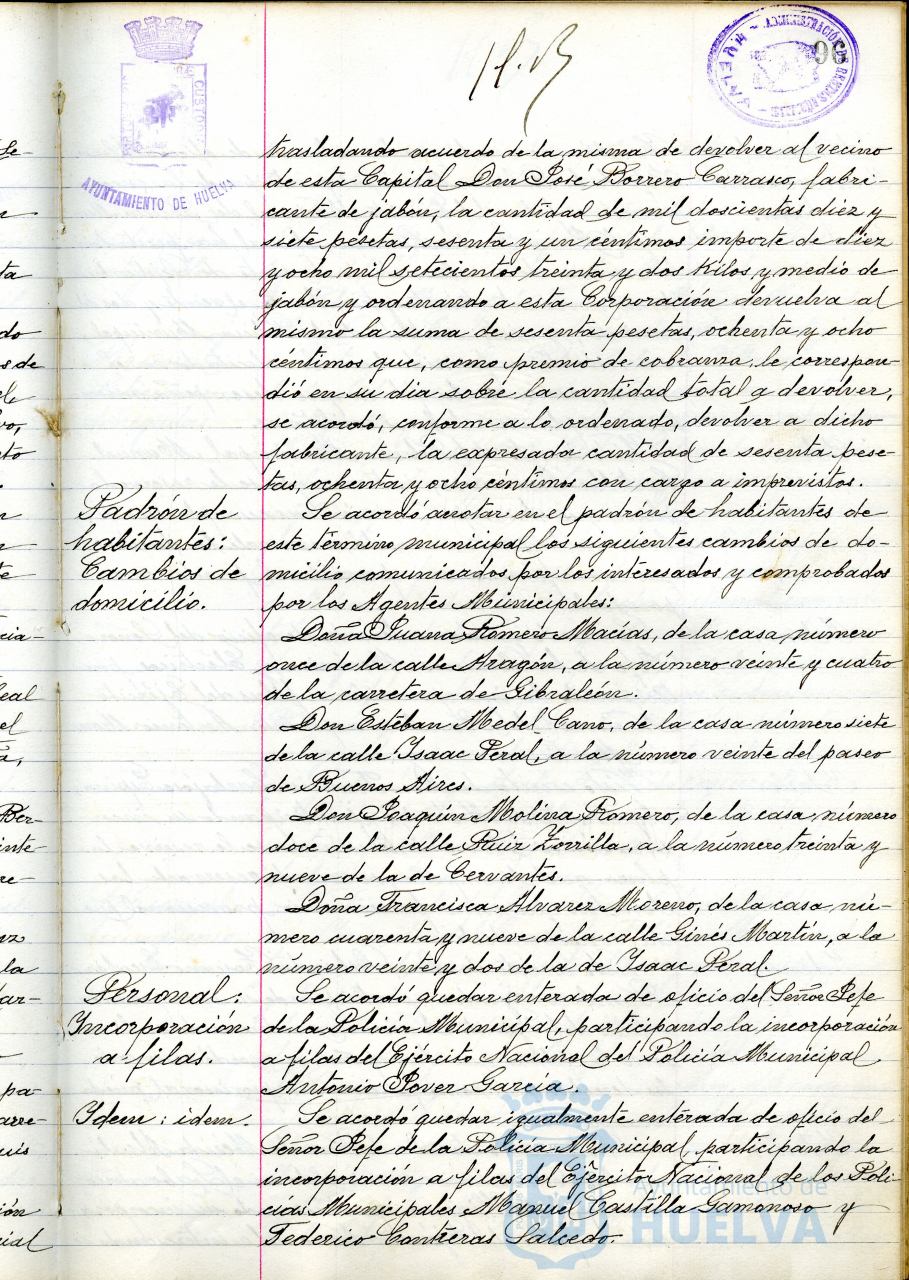 AYUNTAMIENTO DE HUELVA
ADMINISTRACIÓN DE RENTAS
HUELVA
96
trasladando acuerdo de la misma de devolver al vecino
de esta Capital Don José Borrero Carrasco, fabri-
cante de jabón, la cantidad de mil doscientas diez y
siete pesetas, sesenta y un céntimos importe de diez
y ocho mil setecientos treinta y dos Kilos y medio de
jabón y ordenando a esta Corporación devuelva al
mismo la suma de sesenta pesetas, ochenta y ocho
céntimos que, como premio de cobranza, le correspon-
dió en su dia sobre la cantidad total a devolver,
se acordó, conforme a lo ordenado, devolver a dicho
fabricante, la expresada cantidad de sesenta pese-
tas, ochenta y ocho céntimos con cargo a imprevistos.
Padrón de
habitantes:
Cambios de
domicilio.
Se acordó anotar en el padrón de habitantes de
este término municipal los siguientes cambios de do-
micilio comunicados por los interesados y comprobados
por los Agentes Municipales:
Doña Juana Romero Macías, de la casa número
once de la calle Aragón, a la número veinte y cuatro
de la carretera de Gibraleón.
Don Esteban Medel Cano, de la casa número siete
de la calle Isaac Peral, a la número veinte del paseo
de Buenos Aires.
Don Joaquín Molina Romero, de la casa número
doce de la calle Ruiz Zorrilla, a la número treinta y
nueve de la de Cervantes.
Doña Francisca Alvarez Moreno, de la casa nú-
mero cuarenta y nueve de la calle Ginés Martín, a la
número veinte y dos de la de Isaac Peral.
Personal:
Incorporación
a filas.
Se acordó quedar enterada de oficio del Señor Jefe
de la Policía Municipal, participando la incorporación
a filas del Ejército Nacional del Policía Municipal
Antonio Jover García.
Idem: idem.
Se acordó quedar igualmente enterada de oficio del
Señor Jefe de la Policía Municipal, participando la
incorporación a filas del Ejército Nacional de los Poli-
cías Municipales Manuel Castilla Gamonoso y
Federico Contreras Salcedo.
Ayuntamiento de
HUELVA